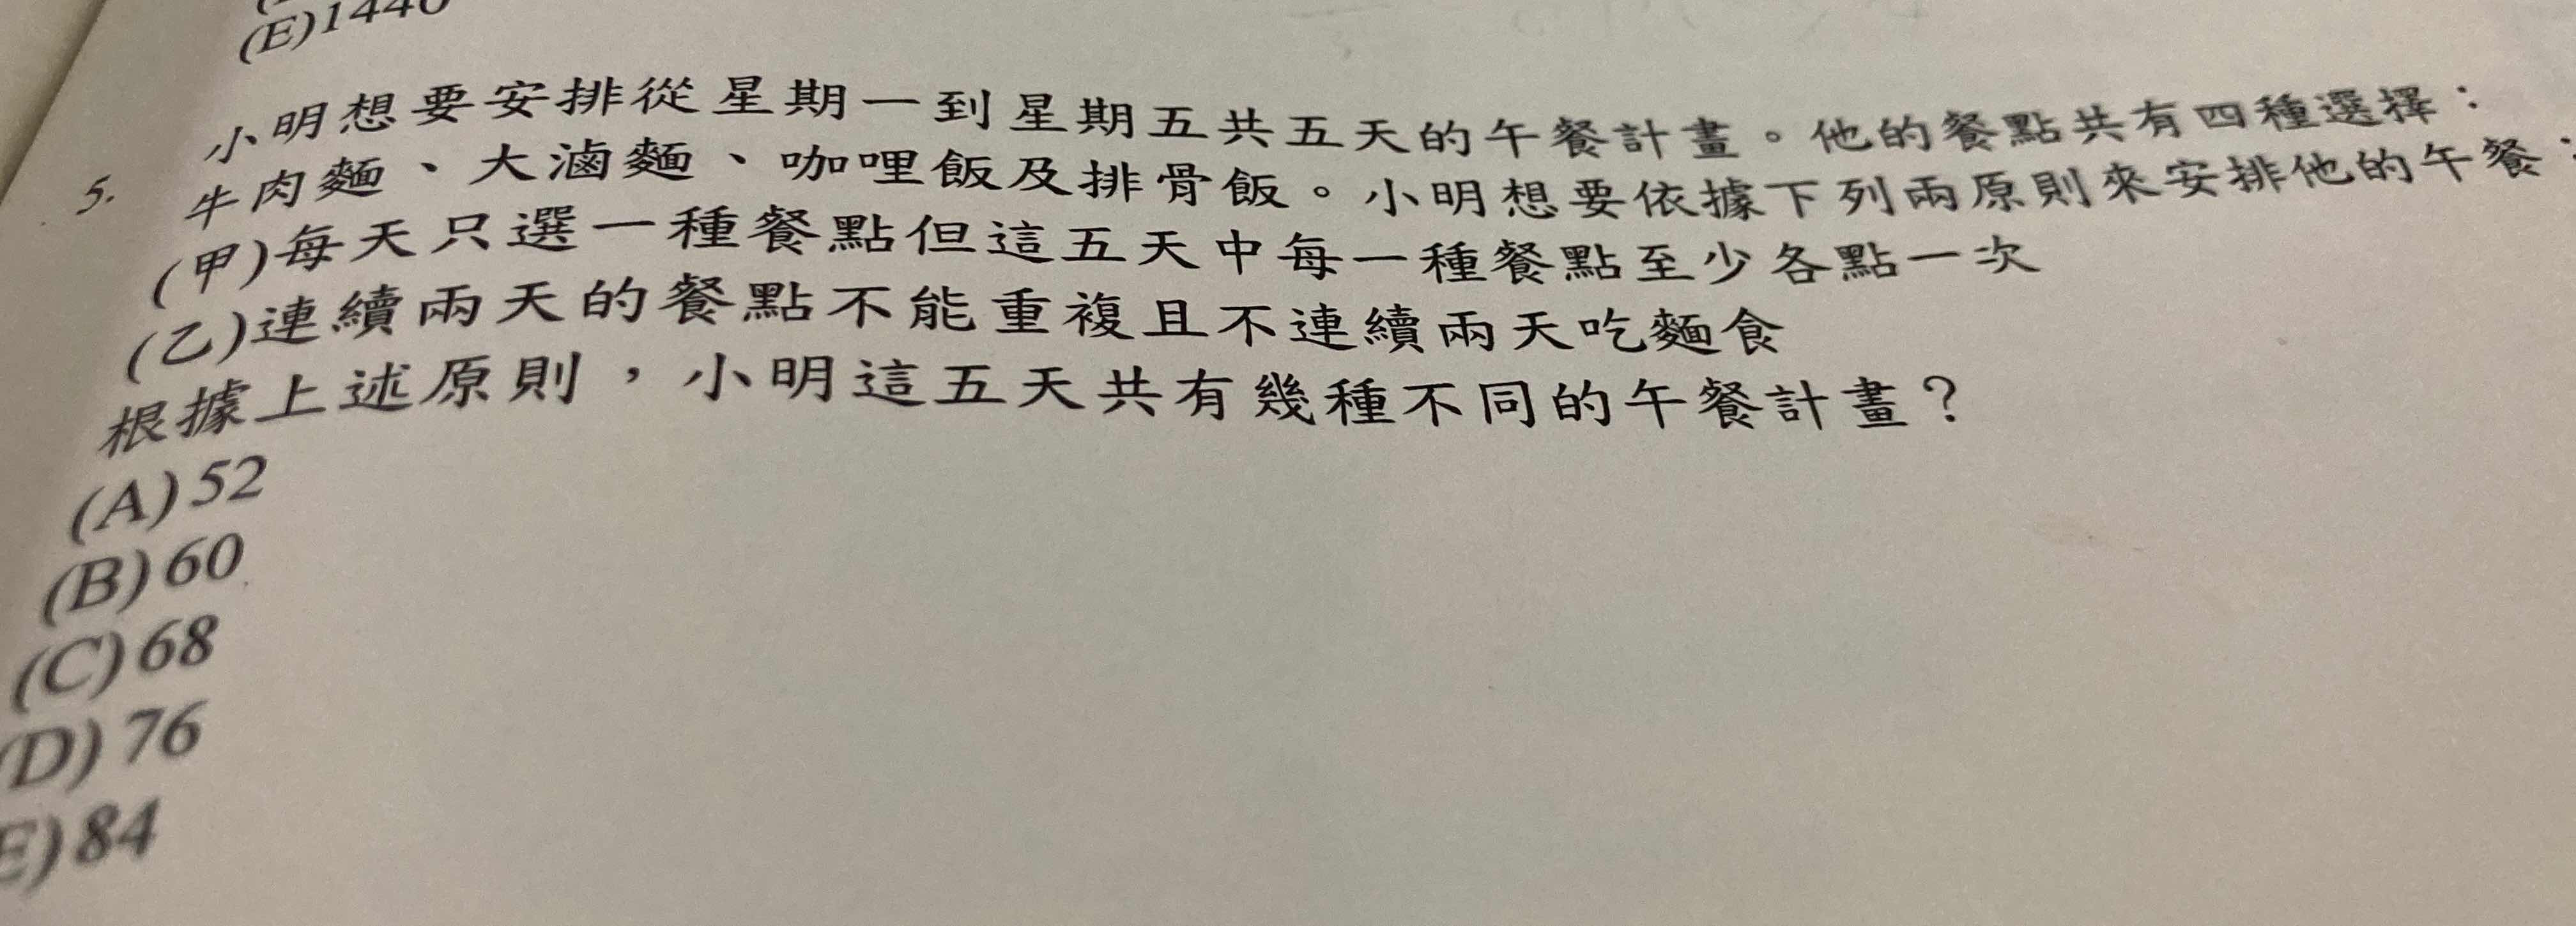 (E)1440
5. 小明想要安排從星期一到星期五共五天的午餐計畫。他的餐點共有四種選擇：
牛肉麵、大滷麵、咖哩飯及排骨飯。小明想要依據下列兩原則來安排他的午餐：
(甲)每天只選一種餐點但這五天中每一種餐點至少各點一次
(乙)連續兩天的餐點不能重複且不連續兩天吃麵食
根據上述原則，小明這五天共有幾種不同的午餐計畫？
(A)52
(B)60
(C)68
(D)76
(E)84